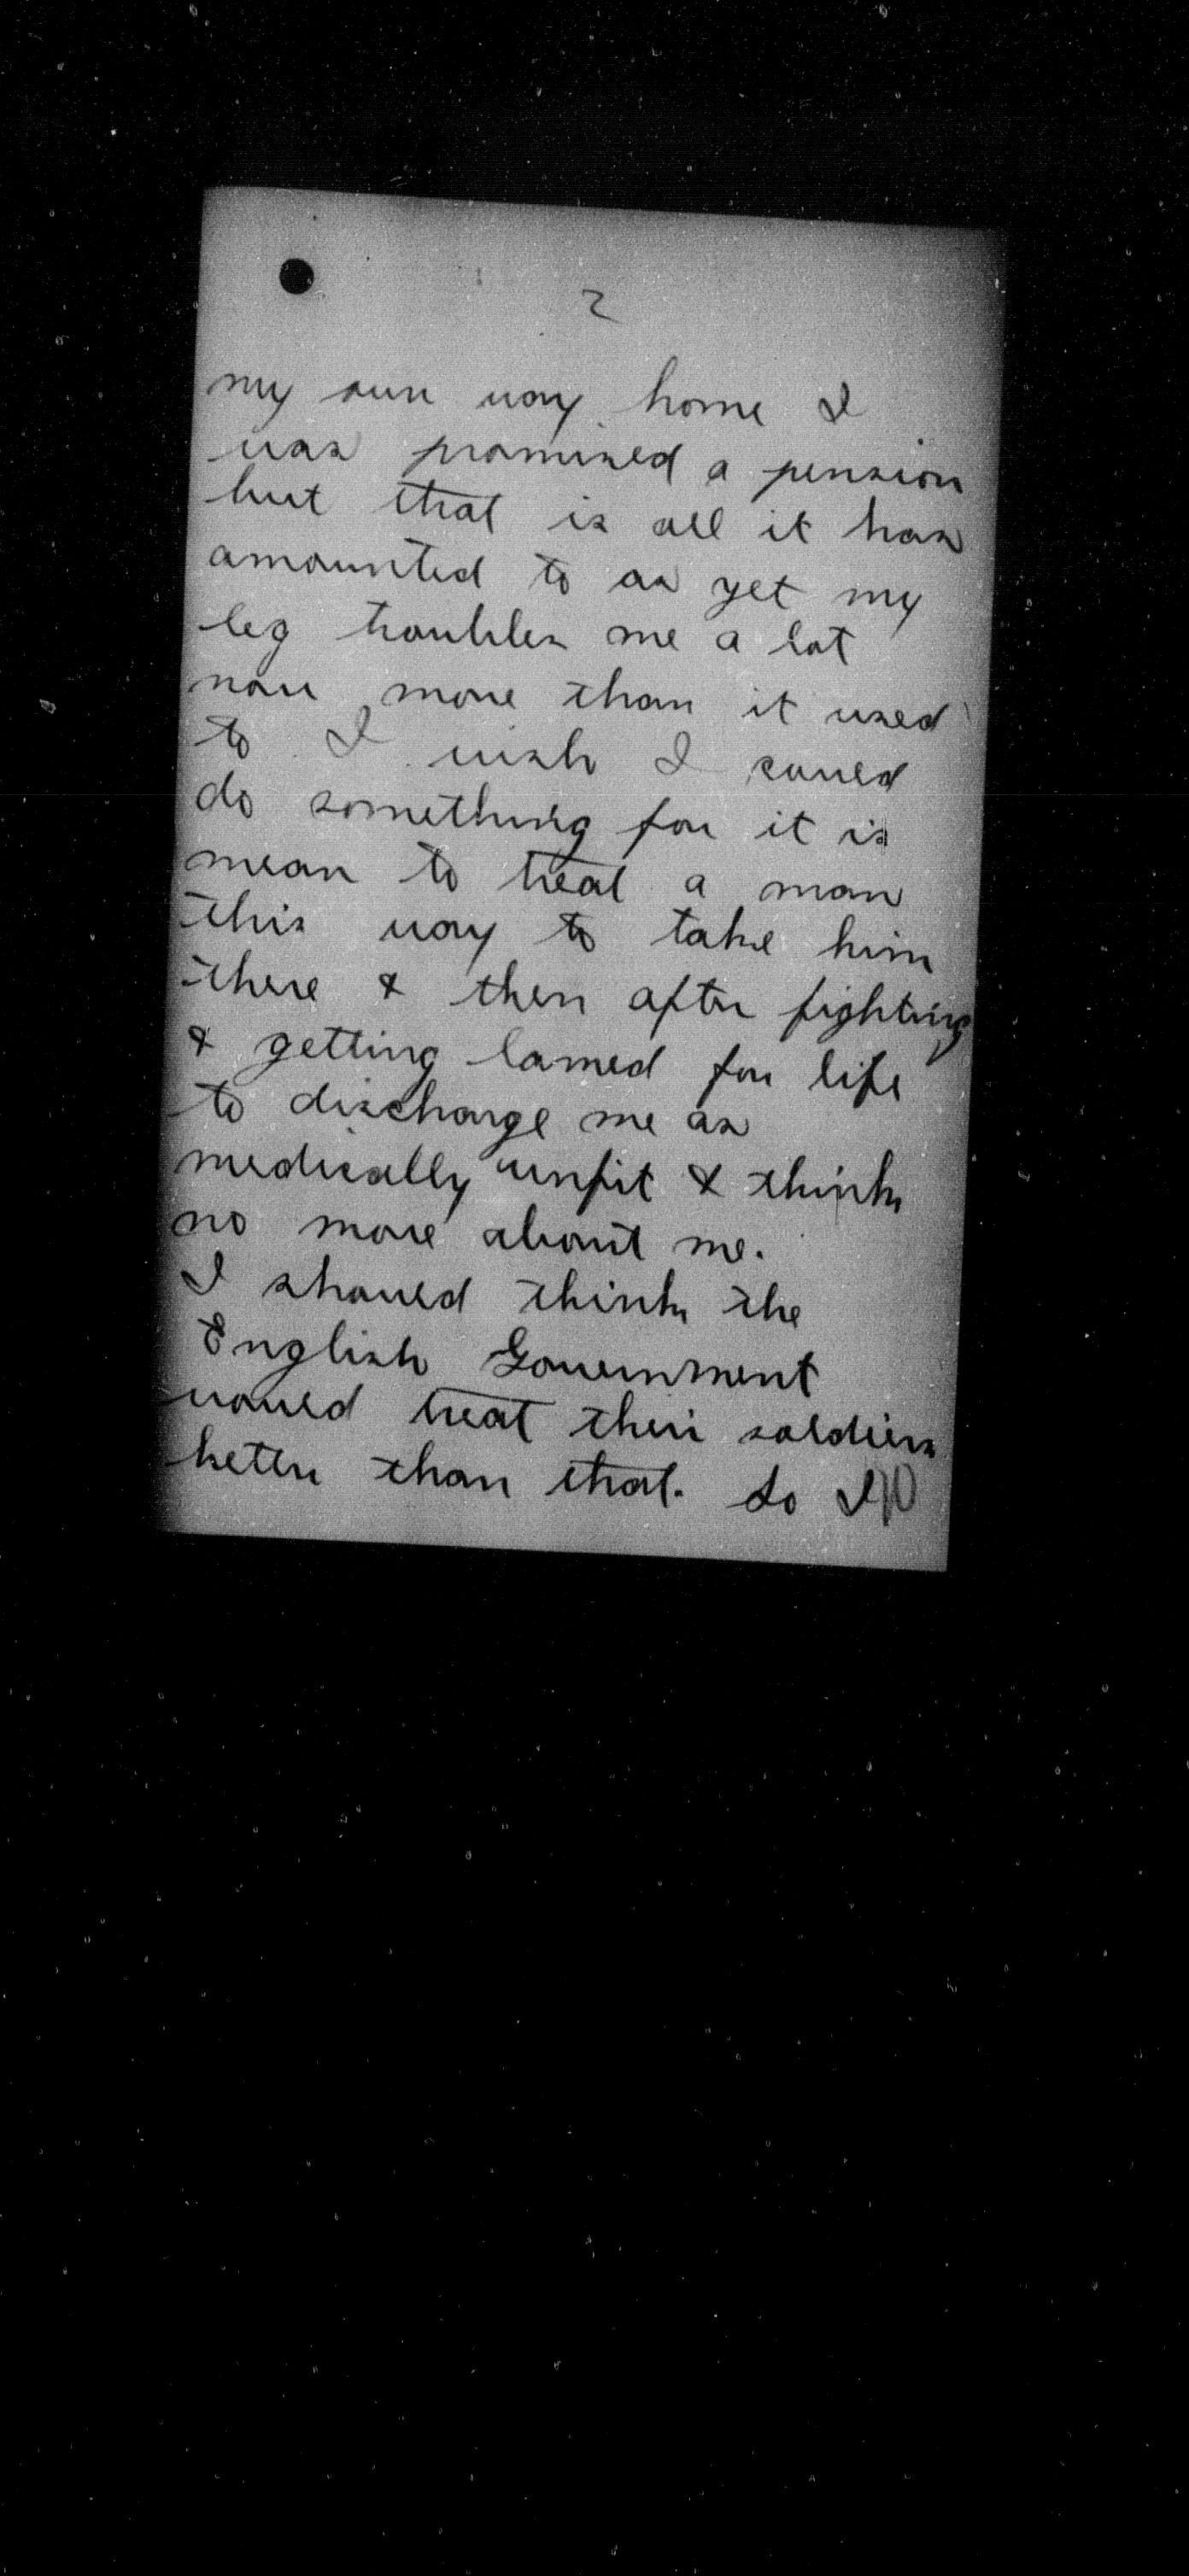 2
my own way home I
was promised a pension
but that is all it has
amounted to as yet my
leg troubles me a lot
now more than it used
to I wish I could
do something for it is
mean to treat a man
this way to take him
there & then after fighting
& getting lamed for life
to discharge me as
medically unfit & think
no more about me.
I should think the
English Government
would treat their soldiers
better than that. So I